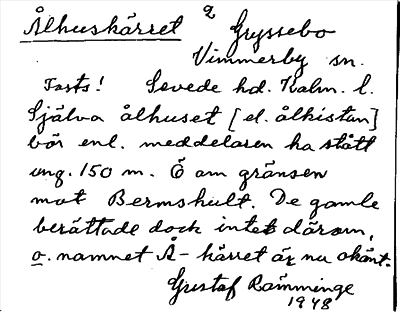 Ålhuskärret 2 Gryssebo
Vimmerby sn.
Fasts! Sevede hd. Kalm. l.
Själva ålhuset [el. ålkistan]
bör enl. meddelaren ha stått
ung. 150 m. Ö om gränsen
mot Bermshult. De gamle
berättade dock intet därom,
o. namnet Å-kärret är nu okänt.
Gustaf Ramminge
1948